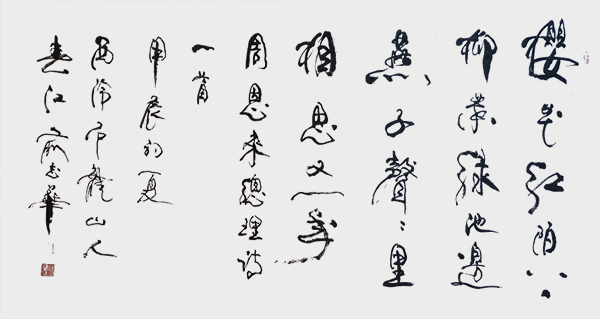 櫻花紅陌上
柳葉綠池邊
燕子聲〻里
相思又一年
周恩來總理詩
一首
甲辰初夏
西泠龍山人
春江俞志華